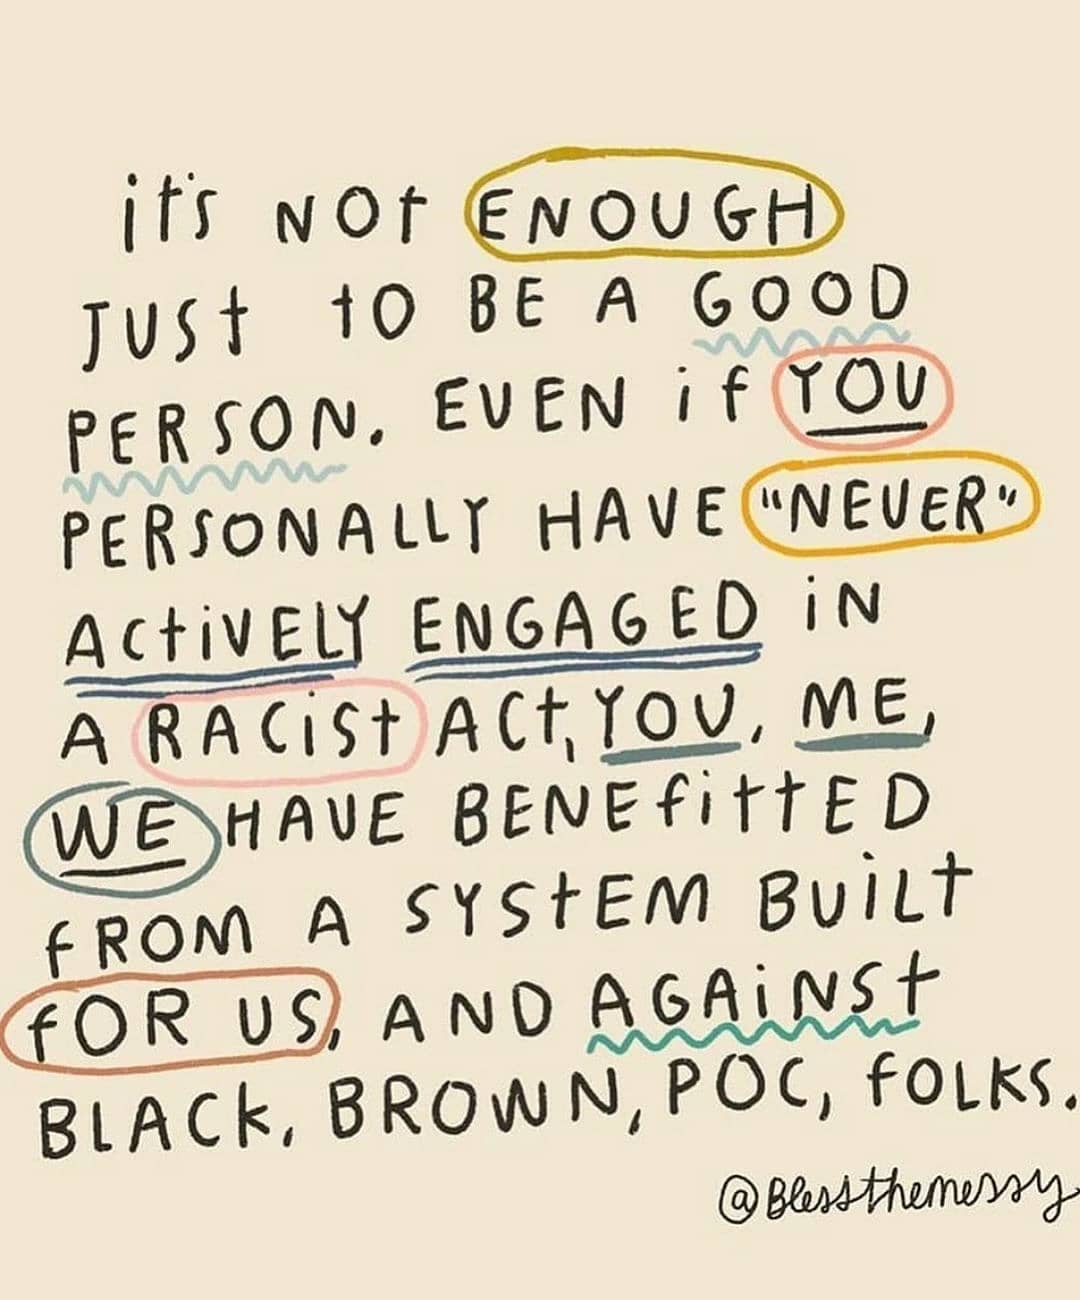 it's NOt ENOUGH
JUSt tO BE A GOOD
PERSON. EVEN if YOU
PERSONALLY HAVE "NEVER"
ACtiVELY ENGAGED iN
A RACiSt ACt, YOU, ME,
WE HAVE BENEfittED
fROM A SYStEM BUiLt
fOR US, AND AGAiNSt
BLACk, BROWN, POC, fOLKS.
@Blessthemessy